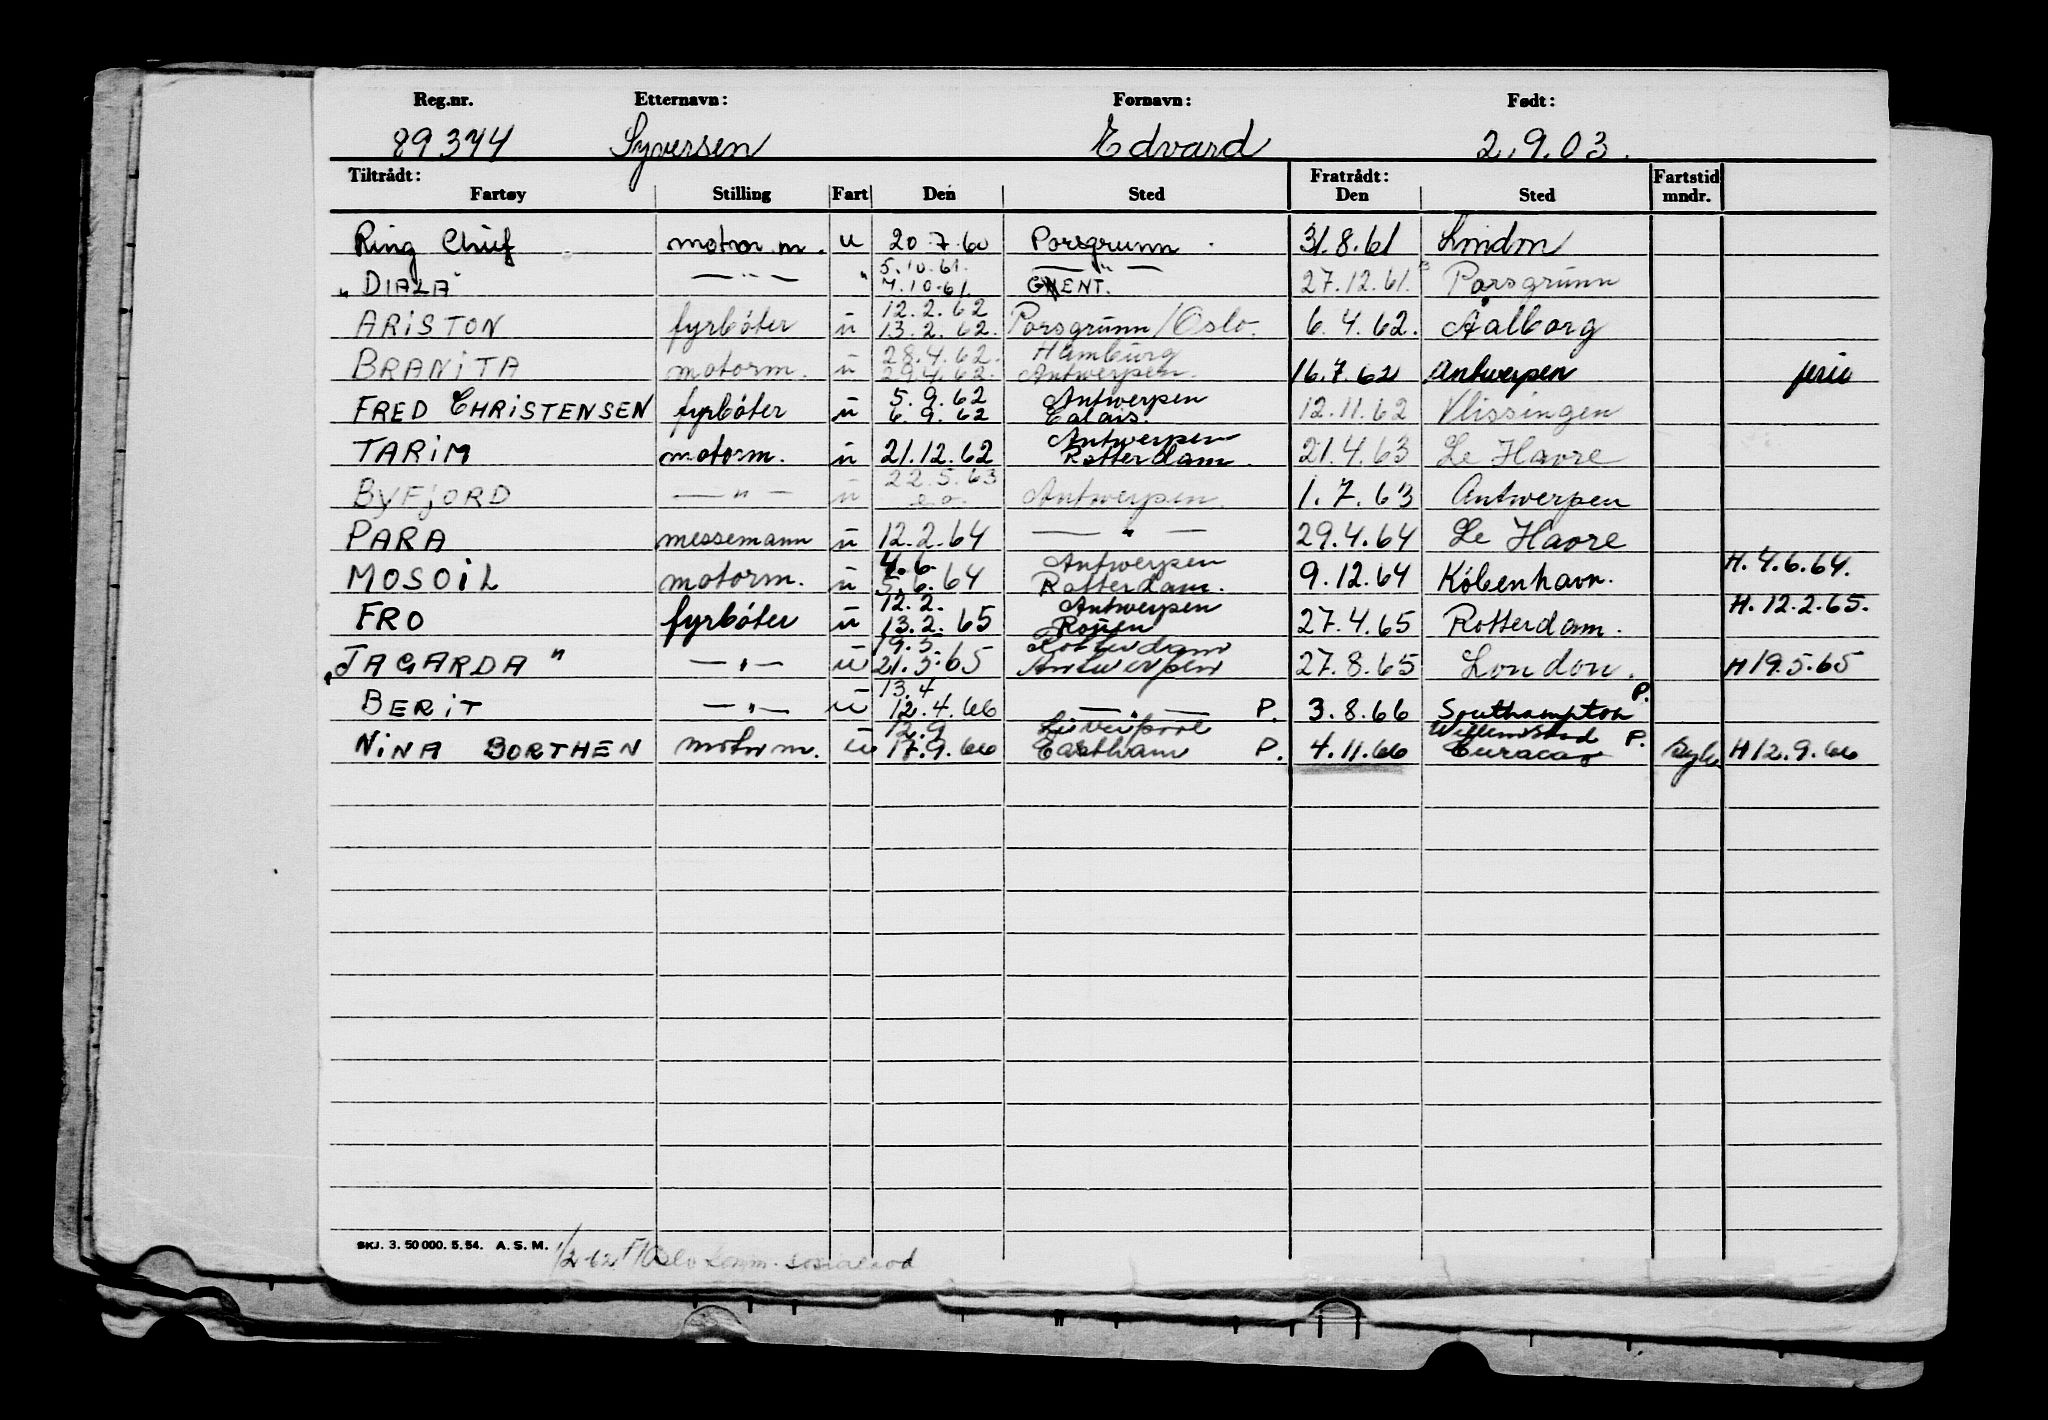 Reg.nr. Etternavn: Fornavn: Født:
89344 Syversen Edvard 2.9.03.
Tiltrådt: Fratrådt: Fartstid
Fartøy Stilling Fart Den Sted Den Sted mndr.
Ring Chief motor.m. u 20.7.60 Porsgrunn. 31.8.61 London
5.10.61. — " —
"DIALA" — " — " 7.10.61. GHENT. 27.12.61. Porsgrunn
12.2.62
ARISTON fyrbøter u 13.2.62. Porsgrunn/Oslo. 6.4.62. Aalborg
28.4.62. Hamburg
BRANITA motorm. u 29.4.62. Antwerpen. 16.7.62 Antwerpen ferie
5.9.62 Antwerpen
FRED CHRISTENSEN fyrbøter u 6.9.62 Calais. 12.11.62 Vlissingen
Antwerpen
TARIM motorm. u 21.12.62 Rotterdam. 21.4.63 Le Havre
22.5.63
BYFJORD — " — u Antwerpen. 1.7.63 Antwerpen
PARA messemann u 12.2.64 — " — 29.4.64 Le Havre
4.6. Antwerpen H. 4.6.64.
MOSOIL motorm. u 5.6.64 Rotterdam. 9.12.64 København.
12.2. Antwerpen H. 12.2.65.
FRO fyrbøter u 13.2.65 Rouen 27.4.65 Rotterdam.
19.5 Rotterdam
"JAGARDA" — " — u 21.5.65 Antwerpen 27.8.65 London. H 19.5.65
13.4 P.
BERIT — " — u 12.4.66 — " — P. 3.8.66 Southampton
12.9 Liverpool Willemstad P.
NINA BORTHEN motorm. u 17.9.66 Eastham P. 4.11.66 Curacao Syk H 12.9.66
SKJ. 3. 50 000. 5. 54. A. S. M. 1/2-62 Oslo komm.